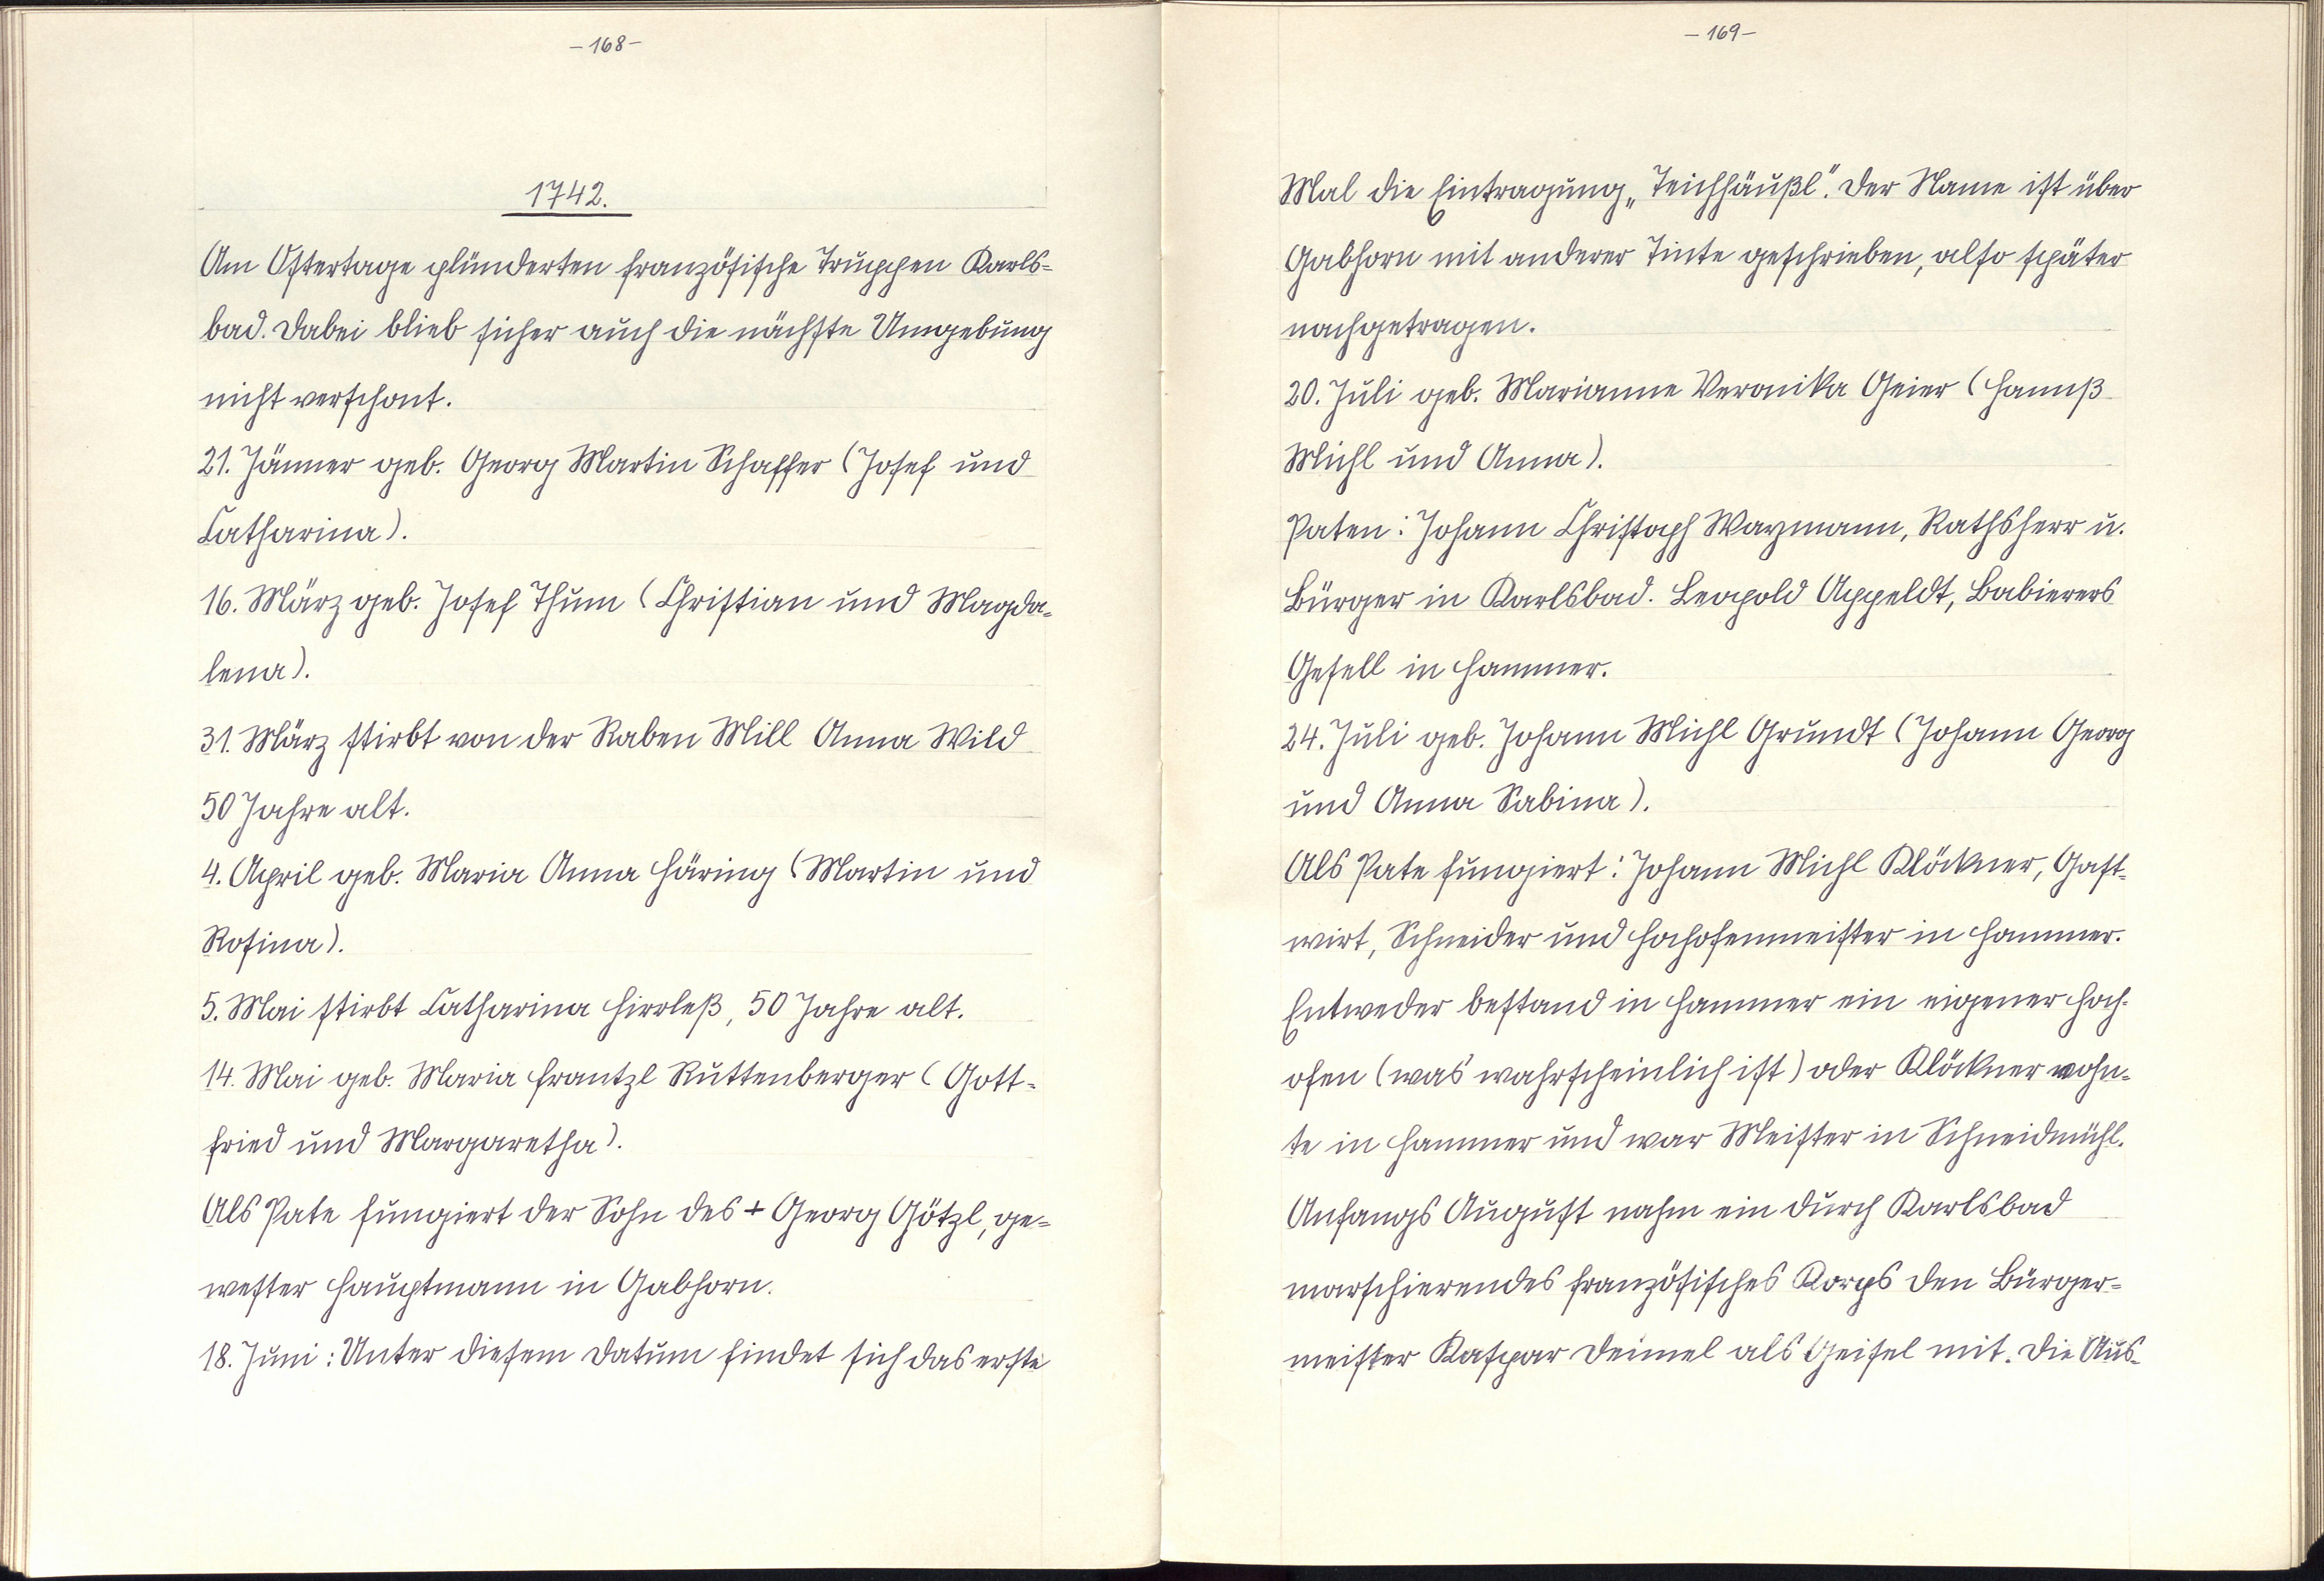 - 168 -
1742.
Am Ostertage plünderten französische Truppen Karls=
bad. Dabei blieb sicher auch die nächste Umgebung
nicht verschont.
21. Jänner geb. Georg Martin Schaffer (Josef und
Catharina).
16. März geb. Josef Thum (Christian und Magda=
lena).
31. März stirbt von der Raben Mill Anna Wild
50 Jahre alt.
4. April geb. Maria Anna Häring (Martin und
Rosina).
5. Mai stirbt Catharina Hirrleß, 50 Jahre alt.
14. Mai geb. Maria Frantzl Ruttenberger (Gott=
fried und Margaretha).
Als Pate fungiert der Sohn des + Georg Götzl, ge=
wester Hauptmann in Gabhorn.
18. Juni: Unter diesem Datum findet sich das erste
- 169 -
Mal die Eintragung „Teichhäußl". Der Name ist über
Gabhorn mit anderer Tinte geschrieben, also später
nachgetragen.
20. Juli geb. Marianne Veronika Geier (Hannß
Michl und Anna).
Paten: Johann Christoph Waymann, Rathsherr u.
Bürger in Karlsbad. Leopold Appeldt, Babierers
Gesell in Hammer.
24. Juli geb. Johann Michl Grundt (Johann Georg
und Anna Sabina).
Als Pate fungiert: Johann Michl Klöckner, Gast=
wirt, Schneider und Hochofenmeister in Hammer.
Entweder bestand in Hammer ein eigener Hoch-
ofen (was wahrscheinlich ist) oder Klöckner wohn=
te in Hammer und war Meister in Schneidmühl.
Anfangs August nahm ein durch Karlsbad
marschierendes französisches Korps den Bürger=
meister Kaspar Deimel als Geisel mit. Die Aus=